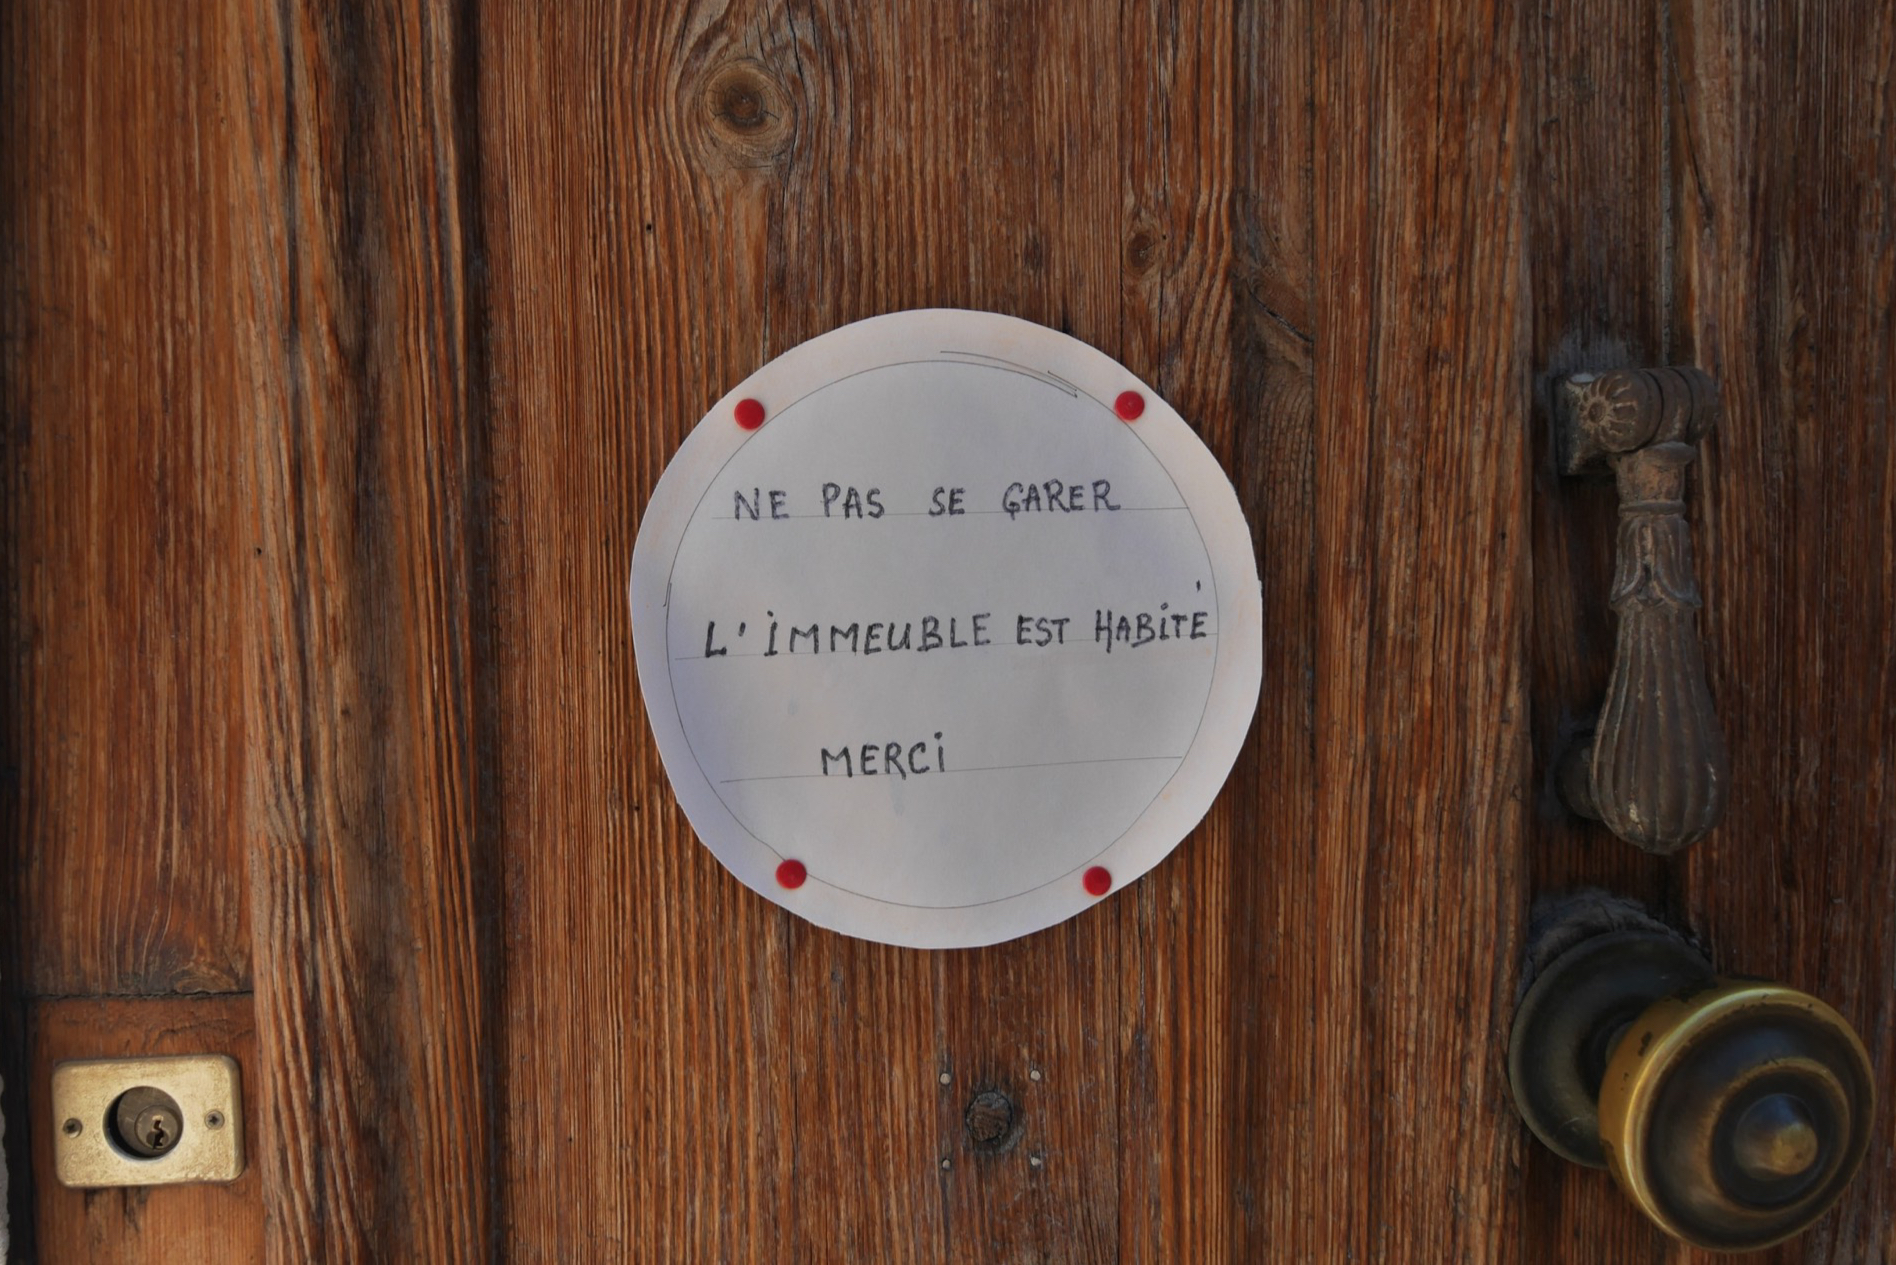 NE PAS SE GARER
L'IMMEUBLE EST HABITÉ
MERCI